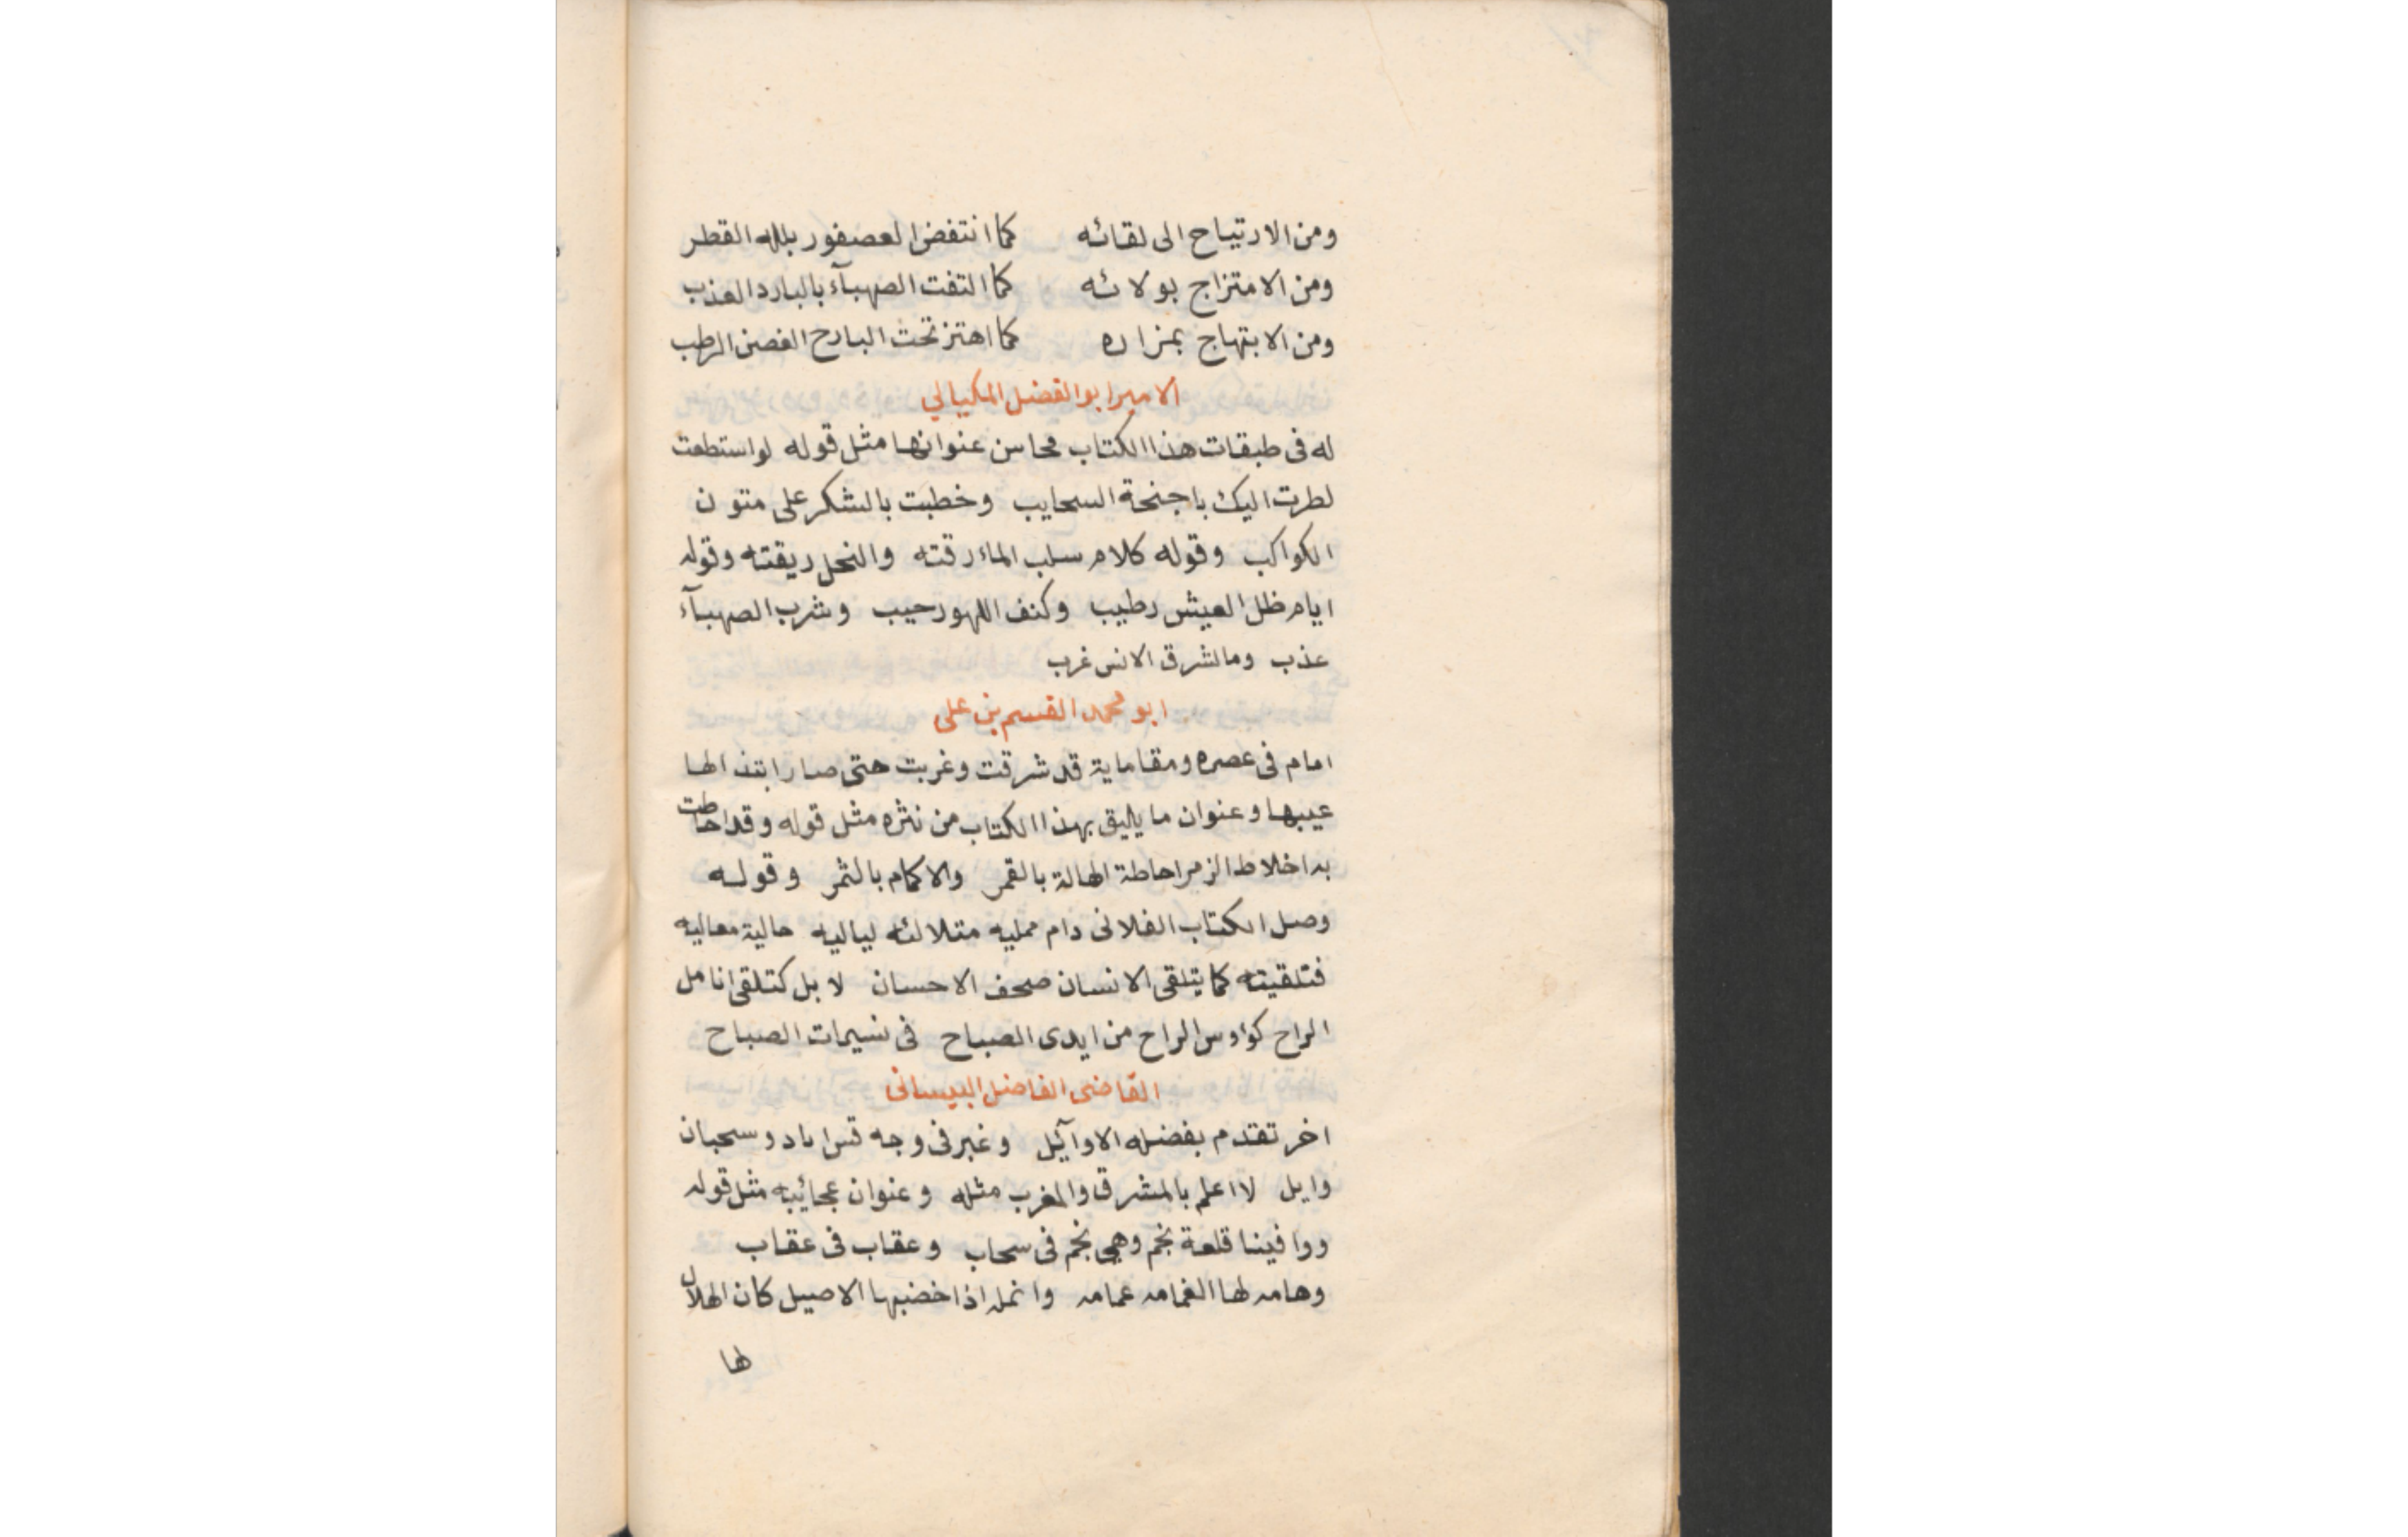 ومن الارتياح الى لقائه كما انتفض العصفور بلله القطر
ومن الامتزاج بولائه كما التفت الصهبآء بالبارد العذب
ومن الابتهاج بمزاره كما اهتز تحت البارح الغصن الرطب
الامير ابو الفضل المكيالي
له فى طبقات هذا الكتاب محاسن عنوانها مثل قوله لو استطعت
لطرت اليك باجنحة السحايب وخطبت بالشكر على متون
الكواكب وقوله كلام سلب الماء رقته والنحل ريقته وقوله
ايام ظل العيش رطيب وكنف اللهو رحيب وشرب الصهبآء
عذب ومالشرق الانس غرب
ابو محمد القسم بن على
امام فى عصره ومقاماية قد شرقت وغربت حتى صار ابتذالها
عيبها وعنوان ما يليق بهذا الكتاب من نثره مثل قوله وقد احاطت
به اخلاط الزمر احاطة الهالة بالقمر والاكمام بالثمر وقوله
وصل الكتاب الفلانى دام ممليه متلالئه لياليه حالية معاليه
فتلقيته كما يتلقى الانسان صحف الاحسان لا بل كتلقى انامل
الراح كؤوس الراح من ايدى الصباح فى نسيمات الصباح
القاضى الفاضل البيسانى
اخر تقدم بفضله الاوآئل وغبر فى وجه قس اياد وسحبان
وايل لا اعلم بالمشرق والمغرب مثله وعنوان عجائبه مثل قوله
ووافينا قلعة نجم وهي نجم فى سحاب وعقاب فى عقاب
وهامه لها الغمامه عمامه وانمله اذا خضبها الاصيل كان الهلال
لها